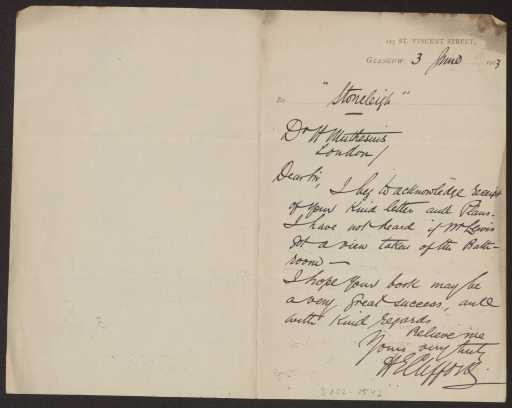 ST. VINCENT STREET,
GLASGOW, 3 June 1903
To
"Stoneleigh"
Dr H Muthesius
London/
Dear Sir,
I beg to acknowledge receipt
of your kind letter and Plans.
I have not heard if Mr Lewis
got a view taken of the Bath
room —
I hope your book may be
a very great success, and
with kind regards
Believe me
Yours very truly
H E Clifford